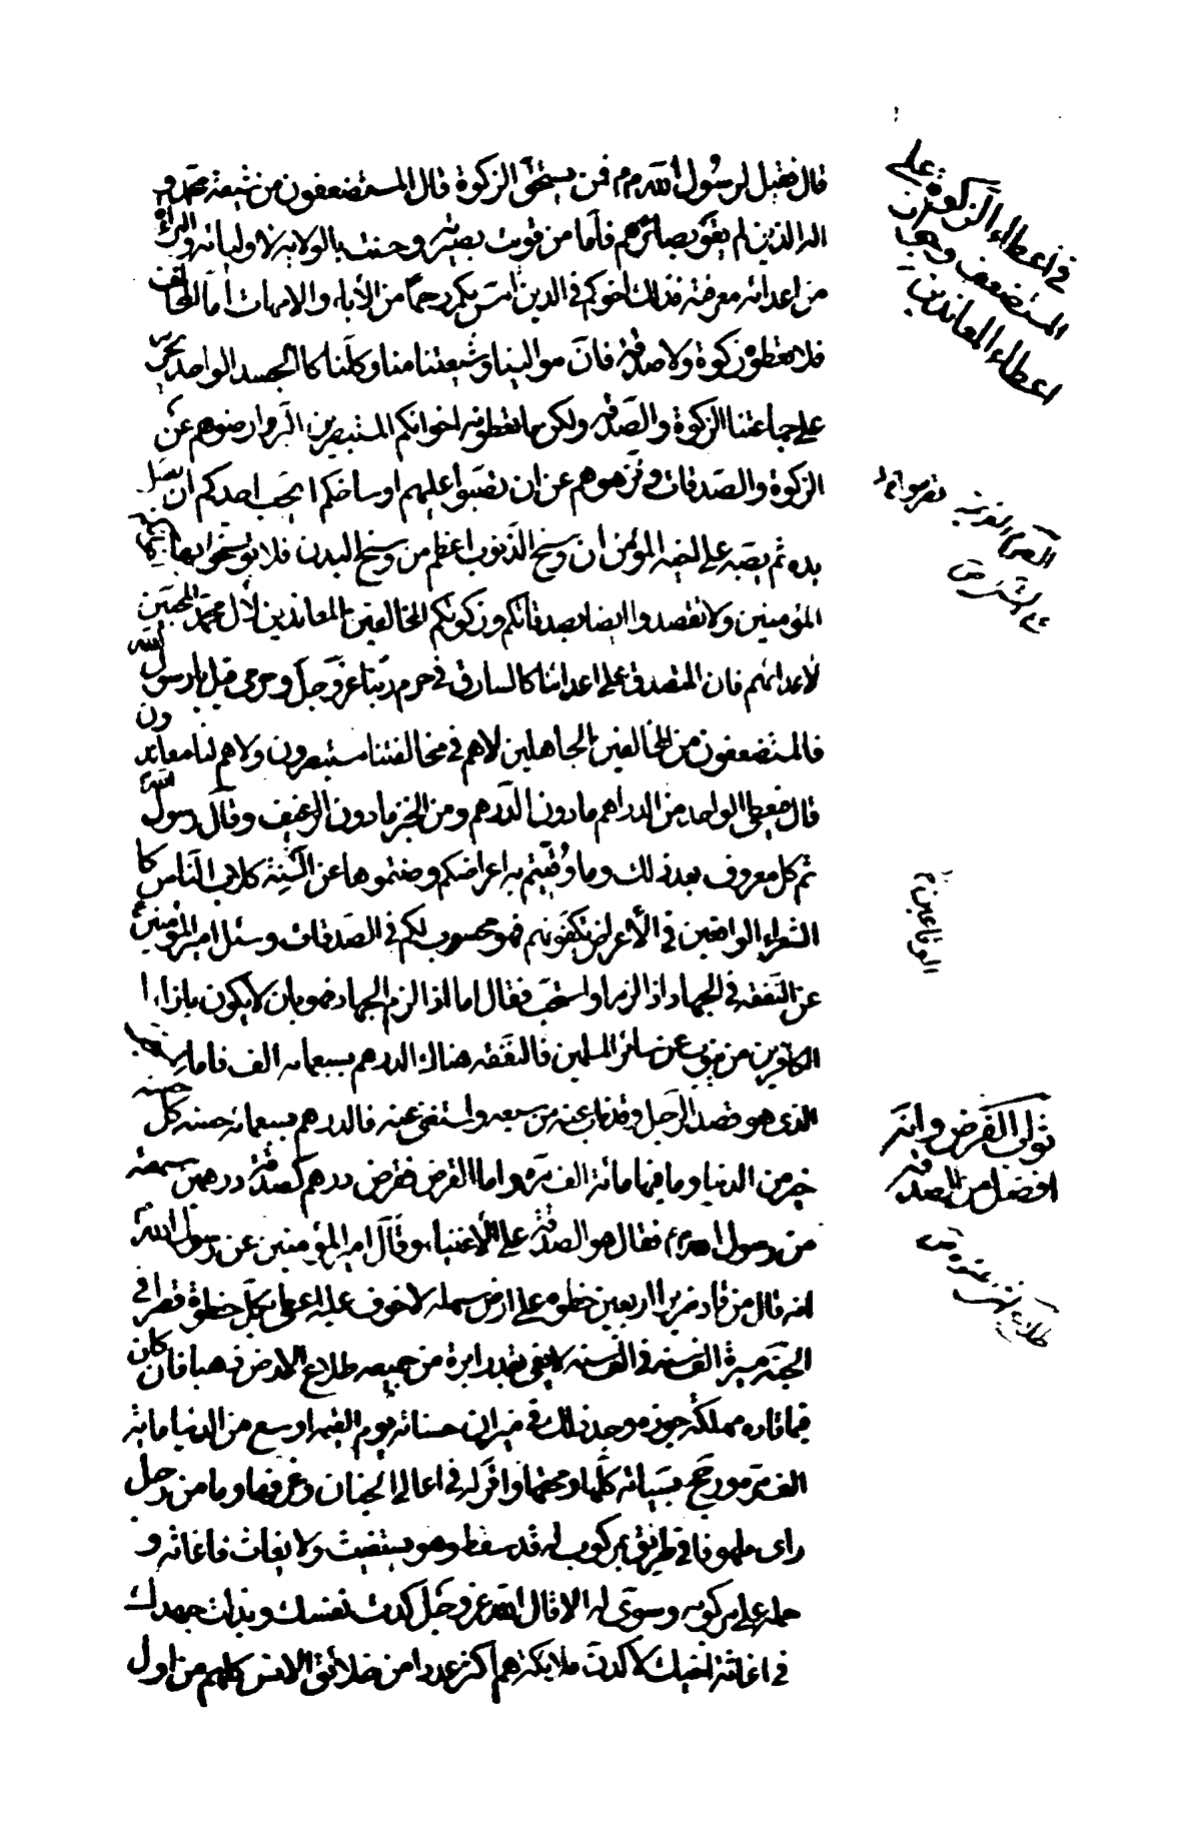 قال فقيل لرسول الله ص م فمن يستحق الزكوة قال المستضعفون من شيعة محمد و
اله الذين لم يقو بصائرهم فاما من قويت بصيرته و حسنت بالولاية لاوليائه والبراءة
من اعدائه معرفته فذلك اخوكم في الدين امس بكم رحما من الاباء والامهات اما المخالف
فلا تعطوه زكوة ولا صدقة فان موالينا وشيعتنا منا وكلنا كالجسد الواحد يحرم
على جماعتنا الزكوة والصدقة وليكن ما تعطونه اخوانكم المستبصرين البر وارفعوهم عن
الزكوة والصدقات ونزهوهم عن ان تصبوا عليهم اوساخكم ايحب احدكم ان يغسل
يده ثم يصبه على اخيه المؤمن ان وسخ الذنوب اعظم من وسخ البدن فلا توسخوا بها
المؤمنين ولا تقصدوا ايضا بصدقاتكم وزكوتكم المخالفين المعاندين لال محمد المحبين
لاعدائهم فان المتصدق على اعدائنا كالسارق في حرم ربنا عز وجل وحرمي قيل يا رسول الله
فالمستضعفون من المخالفين الجاهلين لا هم في مخالفتنا مستبصرون ولا هم لنا معاندون
قال فيعطى الواحد من الدراهم ما دون الدرهم ومن الخبز ما دون الرغيف وقال رسول الله
ثم كل معروف بعد ذلك وما وقيتم به اعراضكم وصنتموها عن السنة كلاب الناس كا
الشعراء الواقعين في الاعراض تكفونهم فهو محسوب لكم في الصدقات وسئل امير المؤمنين
عن النفقة في الجهاد اذا لزم او استحب فقال اما اذا لزم الجهاد فهو بان لا يكون بازاء
الكافرين من ينوب عن سائر المسلمين فالنفقة هناك الدرهم بسبعمائة الف فاما المستحب
الذى هو قصد الرجل وقد ناب عنه من سبقه واستغنى عنه فالدرهم بسبعمائة حسنة كل حسنة
خير من الدنيا وما فيها مائة الف مرة واما القرض فقرض درهم كصدقة درهمين سمعته
من رسول الله ص م فقال هو الصدقة على الاغنياء وقال امير المؤمنين عن رسول الله
انه قال من قاد ضريرا اربعين خطوة على ارض سهلة لا خوف عليه اعطى بكل خطوة قصرا في
الجنة مسيرة الف سنة في الف سنة لا يفى بقدر ابرة من جميعه طلاع الارض ذهبا فان كان
فيما قاده مهلكة جوزه وجد ذلك في ميزان حسناته يوم القيمة اوسع من الدنيا مائة
الف مرة ورجح بسيئاته كلها ومحقها واقر له في اعالى الجنان وغرفها وما من رجل
راى ملهوفا في طريق بمركوب له قد سقط وهو يستغيث ولا يغاث فاغاثه و
حمله على مركوبه وسوى له الا قال الله عز وجل كددت نفسك وبذلت جهدك
في اغاثة اخيك لاكدن ملائكة هم اكثر عددا من خلائق الانس كلهم من اول
في اعطاء الزكوة على
المستضعف وحرمة
اعطاء المعاندين
الوقاعين
تولى القرض وانه
افضل من الصدقة